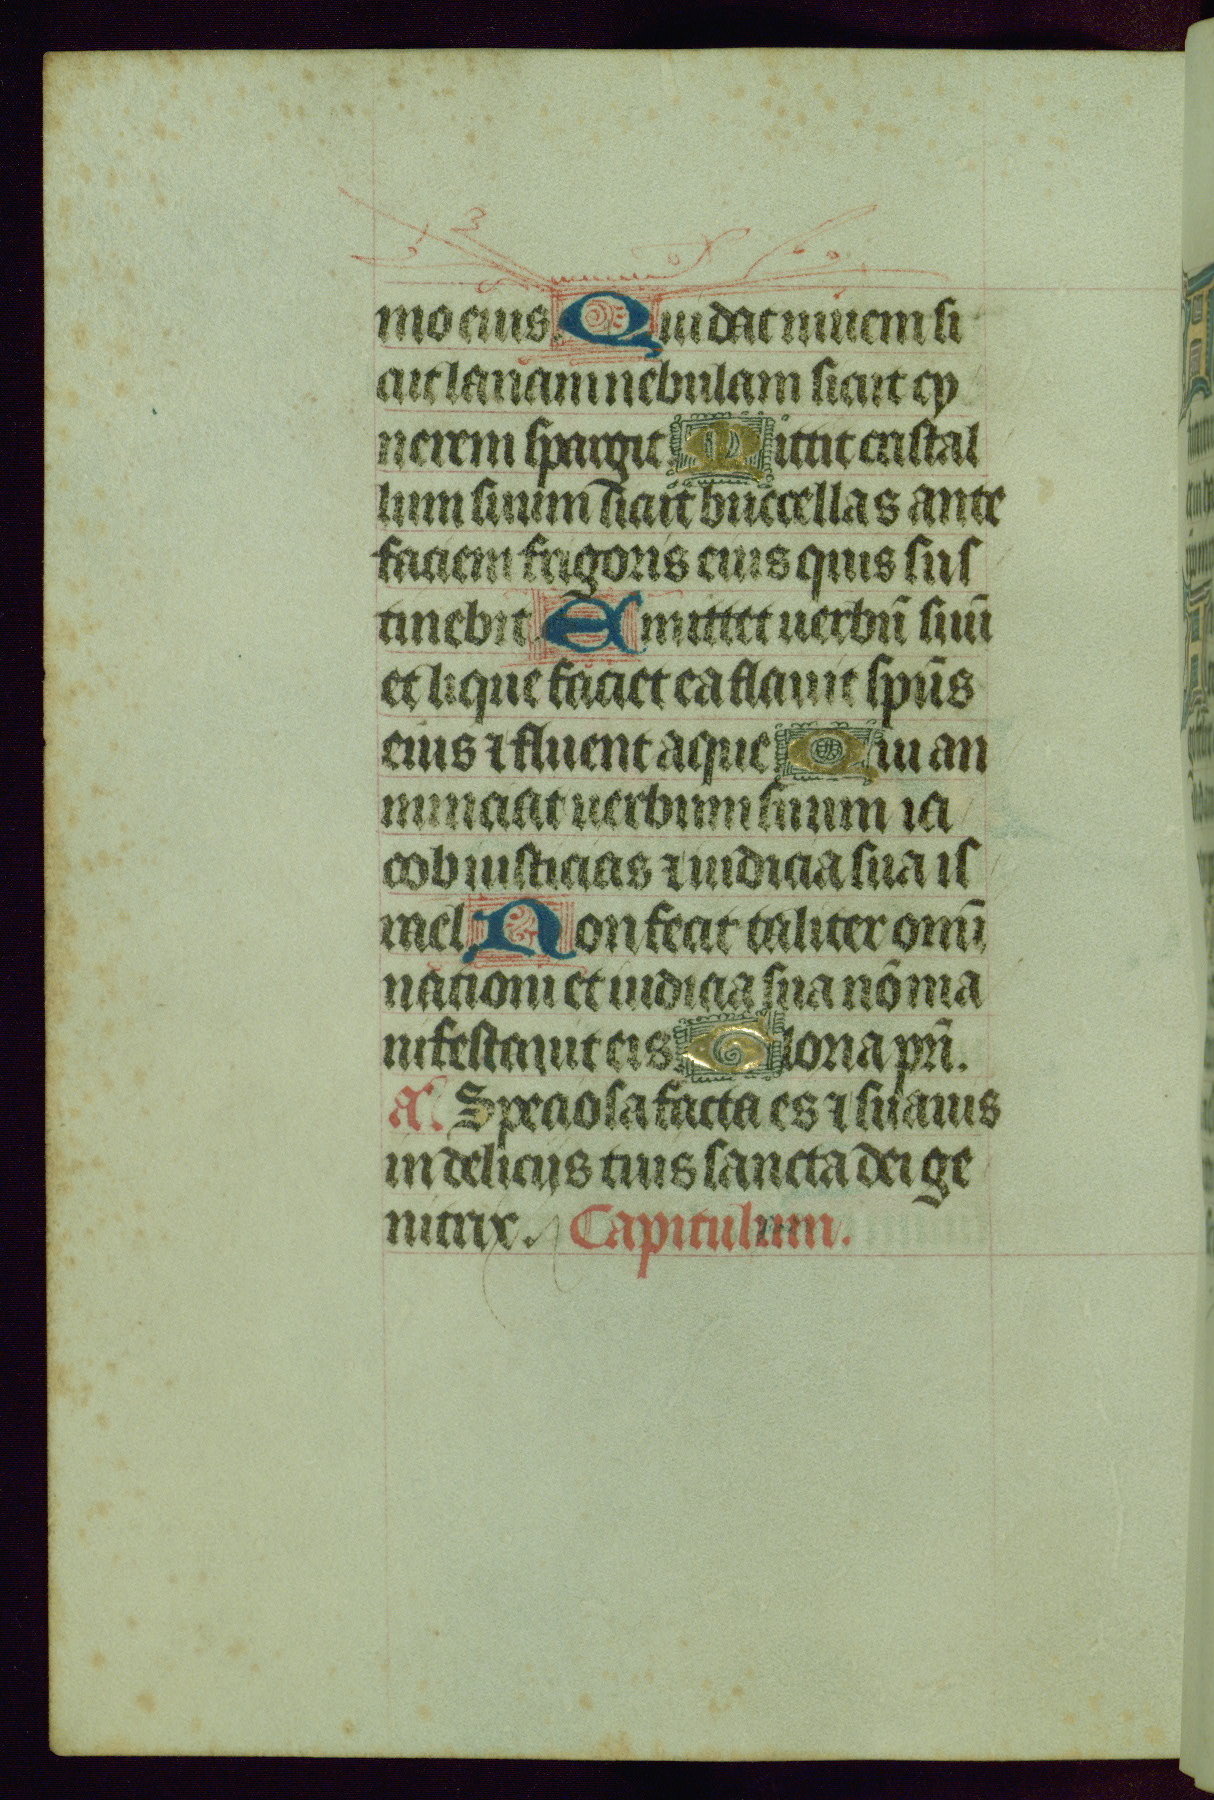 mo eius. Qui dat niuem si
cut lanam nebulam sicut cy
nerem spargit Mittit cristal
lum suum sicut buccellas ante
faciem frigoris eius quis sus
tinebit Emittet uerbū suū
et liquefaciet ea flauit spūs
eius ⁊ fluent aque Qui an
nunciat uerbum suum ia
cob iusticias ⁊ iudicia sua is
rael Non fecit taliter omī
nationi et iudicia sua nō ma
nifestauit eis Gloria pr̄i.
añ. Speciosa facta es ⁊ suauis
in delicijs tuis sancta dei ge
nitrix. Capitulum.